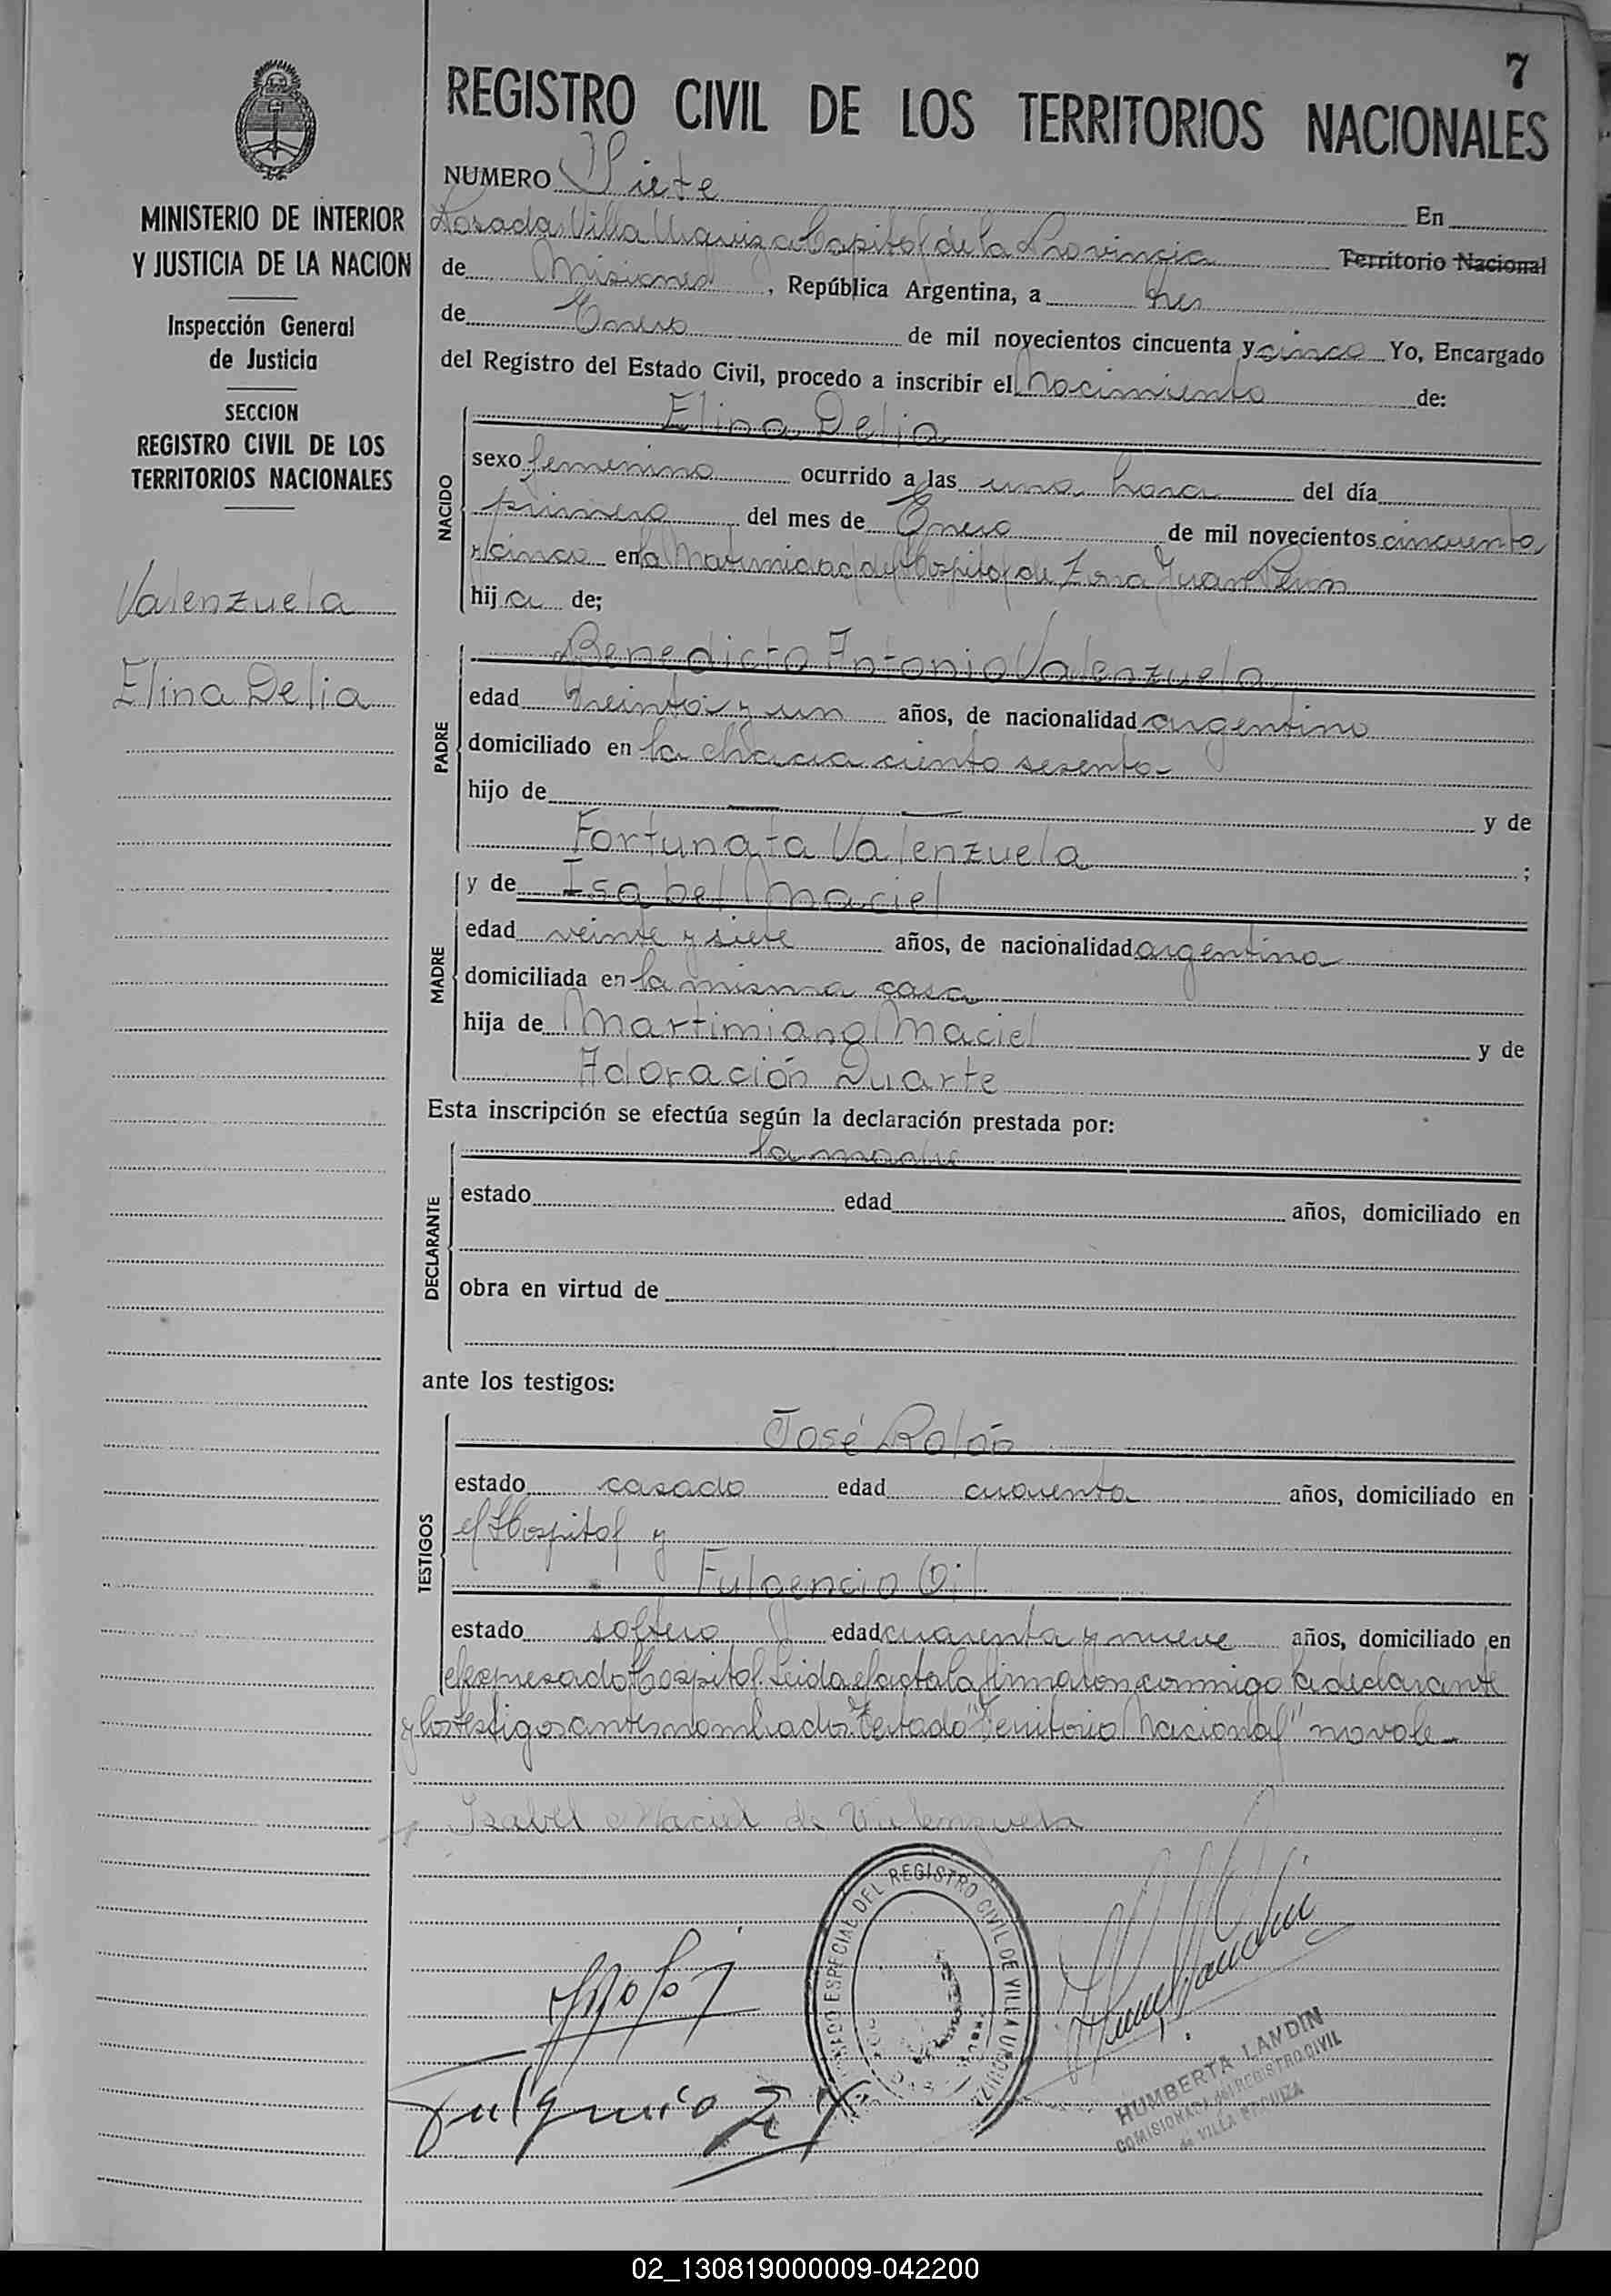 7
REGISTRO CIVIL DE LOS TERRITORIOS NACIONALES
MINISTERIO DE INTERIOR
Y JUSTICIA DE LA NACION
Inspección General
de Justicia
SECCION
REGISTRO CIVIL DE LOS
TERRITORIOS NACIONALES
Valenzuela
Elina Delia
NUMERO Siete En
Posadas Villa Urquiza Capital de la Provincia Territorio Nacional
de Misiones, República Argentina, a tres
de Enero de mil novecientos cincuenta y cinco Yo, Encargado
del Registro del Estado Civil, procedo a inscribir el Nacimiento de:
NACIDO
Elina Delia
sexo femenino ocurrido a las una hora del día
primero del mes de Enero de mil novecientos cincuenta
y cinco en la Maternidad del Hospital de Zona Juan Perón
hija de;
PADRE
Benedicto Antonio Valenzuela
edad treinta y un años, de nacionalidad argentino
domiciliado en la chacra ciento sesenta
hijo de y de
Fortunata Valenzuela ;
MADRE
y de Isabel Maciel
edad veinte y siete años, de nacionalidad argentina
domiciliada en la misma casa
hija de Martimiano Maciel y de
Adoración Duarte
Esta inscripción se efectúa según la declaración prestada por:
DECLARANTE
la madre
estado edad años, domiciliado en
obra en virtud de
ante los testigos:
TESTIGOS
José Rolón
estado casado edad cuarenta años, domiciliado en
el Hospital y
Fulgencio Gil
estado soltero edad cuarenta y nueve años, domiciliado en
el expresado Hospital. Leida el acta la firmaron conmigo la declarante
y los testigos antes nombrados. Testado "Territorio Nacional" no vale
Isabel Maciel de Valenzuela
ESPECIAL DEL REGISTRO CIVIL DE VILLA URQUIZA
Fulgencio Gil
HUMBERTA LANDIN
COMISIONADA del REGISTRO CIVIL
de VILLA URQUIZA
02_130819000009-042200